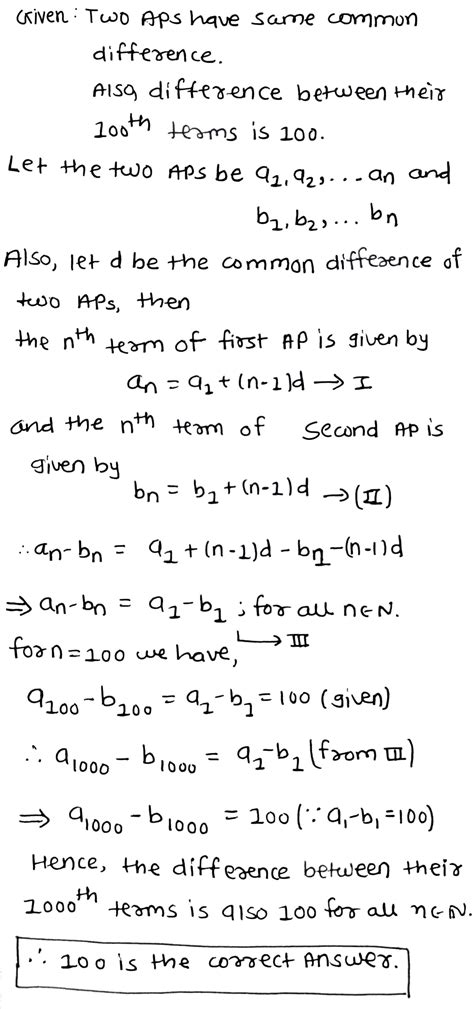 Given: Two APs have same common
difference.
Also, difference between their
100th terms is 100.
Let the two APs be a1, a2, ... an and
b1, b2, ... bn
Also, let d be the common difference of
two APs, then
the nth term of first AP is given by
an = a1 + (n-1)d → I
and the nth term of second AP is
given by
bn = b1 + (n-1)d → (II)
∴ an-bn = a1 + (n-1)d - b1 - (n-1)d
⇒ an-bn = a1-b1 ; for all n∈N.
for n=100 we have, → III
a100 - b100 = a1-b1 = 100 (given)
∴ a1000 - b1000 = a1-b1 (from III)
⇒ a1000 - b1000 = 100 (∵ a1-b1=100)
Hence, the difference between their
1000th terms is also 100 for all n∈N.
∴ 100 is the correct Answer.